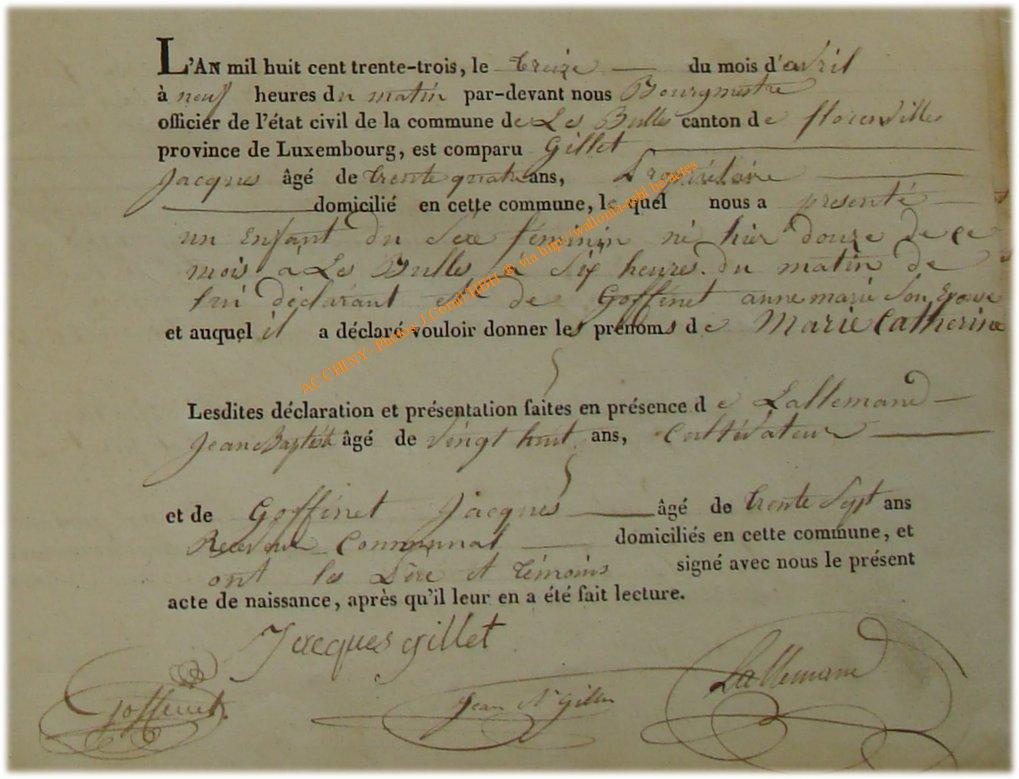 L'AN mil huit cent trente-trois, le treize du mois d'avril
à neuf heures du matin par-devant nous Bourgmestre
officier de l'état civil de la commune de Les Bulles canton de florenville
province de Luxembourg, est comparu Gillet
Jacques âgé de trente quatre ans, Propriétaire
domicilié en cette commune, le quel nous a presenté
un Enfant du Sexe féminin né hier douze de ce
mois à Les Bulles a six heures du matin de
lui déclarant et de Goffinet anne marie Son Epouse
et auquel il a déclaré vouloir donner les prénoms de Marie Catherine
Lesdites déclaration et présentation faites en présence de Lallemand
Jean Baptiste âgé de vingt huit ans, Cultivateur
et de Goffinet Jacques âgé de trente Sept ans
Receveur Communal domiciliés en cette commune, et
ont les Père et témoins signé avec nous le présent
acte de naissance, après qu'il leur en a été fait lecture.
Jacques gillet
Goffinet Jean Gillet Lallemand
AC CHINY - photos J.Collin TBBH ® via http://wallonia-asbl.be/actes